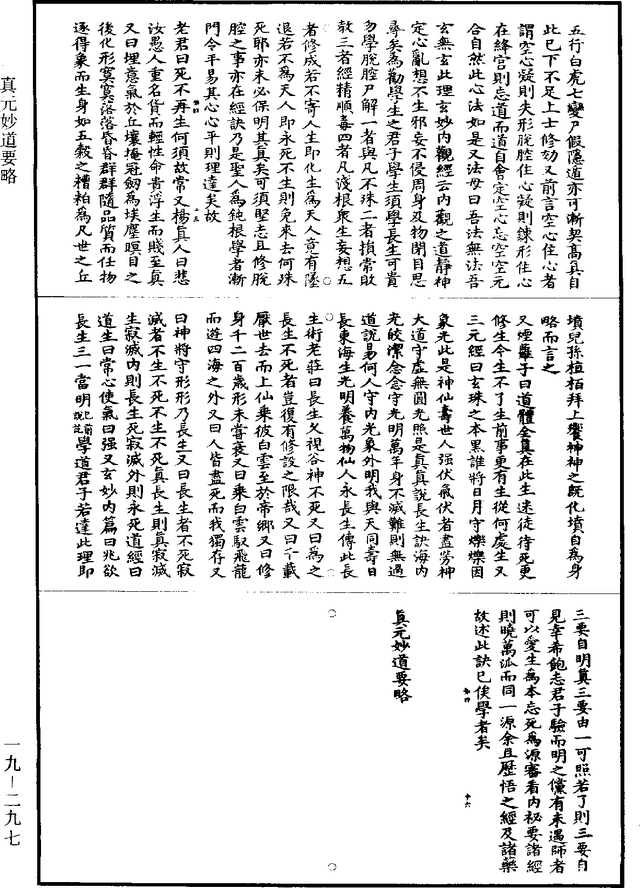 五行白虎七變尸假隱道亦可漸契髙真自
此已下不足上士修功又前言空心住心者
謂空心凝則失形脫腔住心凝則鍊形住心
在絳宮則忘道而道自會定空心忘空空元
合自然此心法如是又法毋曰吾法無法吾
玄無玄此理玄妙内觀經云内觀之道靜神
定心亂想不生邪妄不侵周身及物閉目思
尋矣為勸學生之君子學生須學長生可貴
勿學脫腔尸解一者與凡不殊二者損常敗
教三者經精順毒四者凡淺根衆生妄想五
者修成若不寄人生即化生為天人竟有墜
退若不為天人即永死不生則免來去何殊
死耶亦未必保明其真矣可須堅志且修脫
腔之事亦在經訣乃是聖人為鈍根學者漸
門令平易其心心平則理達矣故
老君曰死不再生何須故常又楊真人曰悲
汝愚人重名貨而輕性命貴浮生而賤至真
又曰埋意氣於丘壤掩冠劔為埃塵瞑目之
後化形寞寞落落昏昏群群隨品質而任物
逐得象而生身如五糓之糟粕為凡世之丘
墳兒孫植栢拜上饗神神之旣化墳自為身
略而言之
又煙蘿子曰道體全真在此生迷徒待死更
修生今生不了生前事更有生從何處生又
三元經曰玄珠之本黒誰將日月守爍爍因
象光此是神仙壽世人强伏氣伏者盡勞神
大道守虚無圓光照是真真說長生訣海内
光皎潔念念守光明萬年身不滅難則無過
道說易何人守内光象外明我與天同壽日
長東海生光明養萬物仙人永長生傳此長
生術老莊曰長生乆視谷神不死又曰為之
長生不死者豈復有修設之限哉又曰千載
厭世去而上仙乘彼白雲至於帝鄉又曰修
身千二百歲形未甞衰又曰乘白雲馭飛龍
而遊四海之外又曰人皆盡死而我獨存又
曰神將守形形乃長生又曰長生者不死寂
滅者不生不死不生不死真長生則真寂滅
生寂滅内則長生死寂滅外則永死道經曰
道生曰常心使氣曰强又玄妙内篇曰兆欲
長生三一當明已前說訖學道君子若達此理即
三要自明真三要由一可照若了則三要自
見幸希飽志君子驗而明之儻有未遇師者
可以愛生為本忘死為源審看内祕要諸經
則曉萬派而同一源余且歷悟之經及諸藥
故述此訣已俟學者矣
真元妙道要略
真元妙道要略
一九－二九七